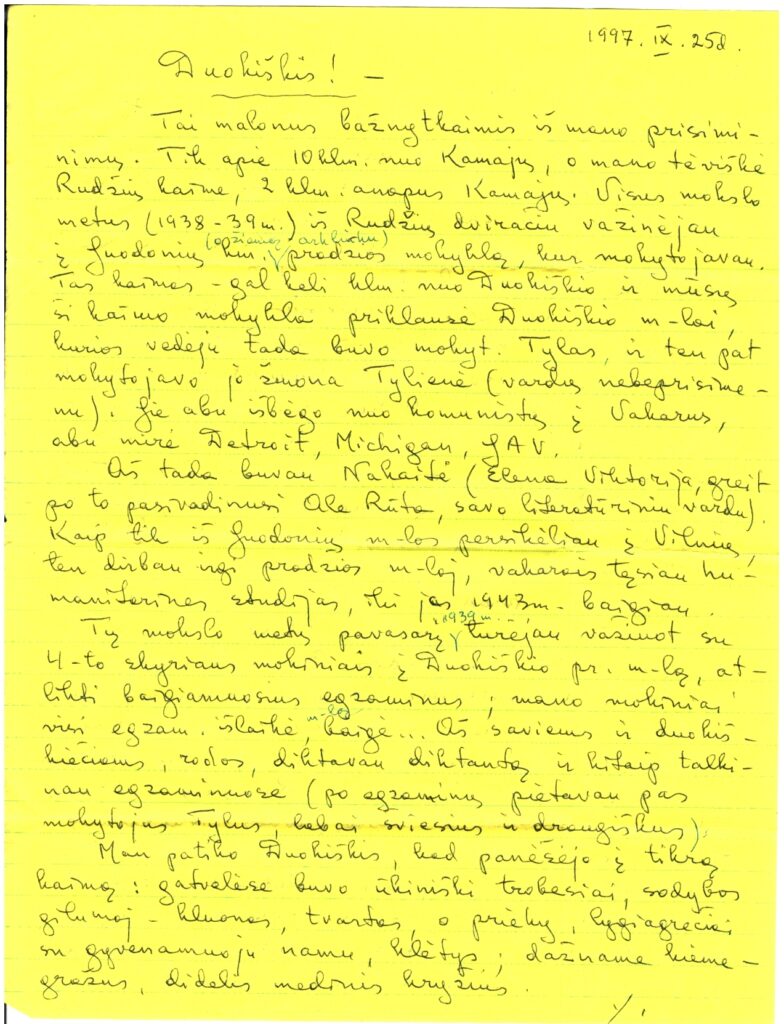 1997. IX. 25d.
Duokiškis! –
Tai malonus bažnytkaimis iš mano prisimi-
nimų. Tik apie 10 klm. nuo Kamajų, o mano tėviškė
Rudžių kaime, 2 klm. anapus Kamajų. Visus mokslo
metus (1938-39m.) iš Rudžių dviračiu važinėjau
(o žiemos arkliuku)
į Juodonių km. pradžios mokyklą, kur mokytojavau.
Tas kaimas - gal keli klm. nuo Duokiškio ir mūsų
ši kaimo mokykla priklausė Duokiškio m-lai,
kurios vedėju tada buvo mokyt. Tylas, ir ten pat
mokytojavo jo žmona Tylienė (vardų nebeprisime-
nu). Jie abu išbėgo nuo komunistų į Vakarus,
abu mirė Detroit, Michigan, JAV.
Aš tada buvau Nakaitė (Elena Viktorija, greit
po to pasivadinusi Ale Rūta, savo literatūriniu vardu).
Kaip tik iš Juodonių m-los persikėliau į Vilnių,
ten dirbau irgi pradžios m-loj, vakarais tęsiau hu-
manitarines studijas, iki jas 1943m. baigiau.
Tų mokslo metų pavasarį 1939m. turėjau važiuot su
4-to skyriaus mokiniais į Duokiškio pr. m-lą, at-
likti baigiamuosius egzaminus; mano mokiniai
visi egzam. išlaikė, m-lą baigė... Aš saviems ir duokiš-
kiečiams, rodos, diktavau diktantą ir kitaip talki-
nau egzaminuose (po egzaminų pietavau pas
mokytojus Tylus, labai šviesius ir draugiškus).
Man patiko Duokiškis, kad panėšėjo į tikrą
kaimą: gatvelėse buvo ūkiniški trobesiai, sodybos
gilumoj - kluonas, tvartas, o priekų, lygiagrečiai
su gyvenamuoju namu, klėtys; dažname kieme -
gražus, didelis medinis kryžius.
./.